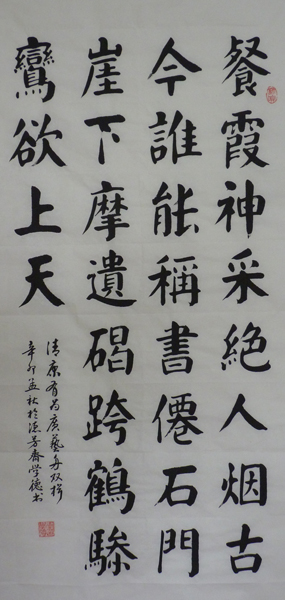 餐霞神采絶人烟古
今誰能稱書僊石門
崖下摩遺碣跨鶴驂
鸞欲上天
清康有為廣藝舟双楫
辛卯孟秋於源芳齋学德书